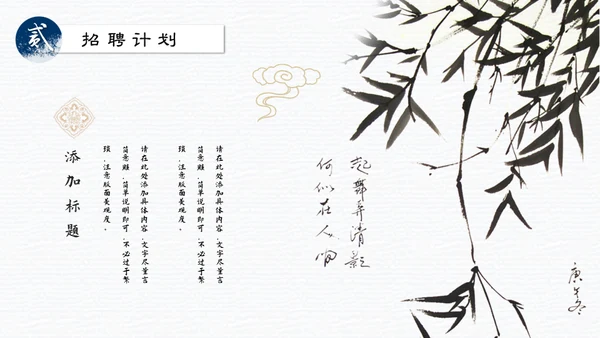 贰
招聘计划
添加标题
请在此处添加具体内容,文字尽量言
简意赅,简单说明即可,不必过于繁
琐,注意版面美观度。
请在此处添加具体内容,文字尽量言
简意赅,简单说明即可,不必过于繁
琐,注意版面美观度。
起舞弄清影
何似在人间